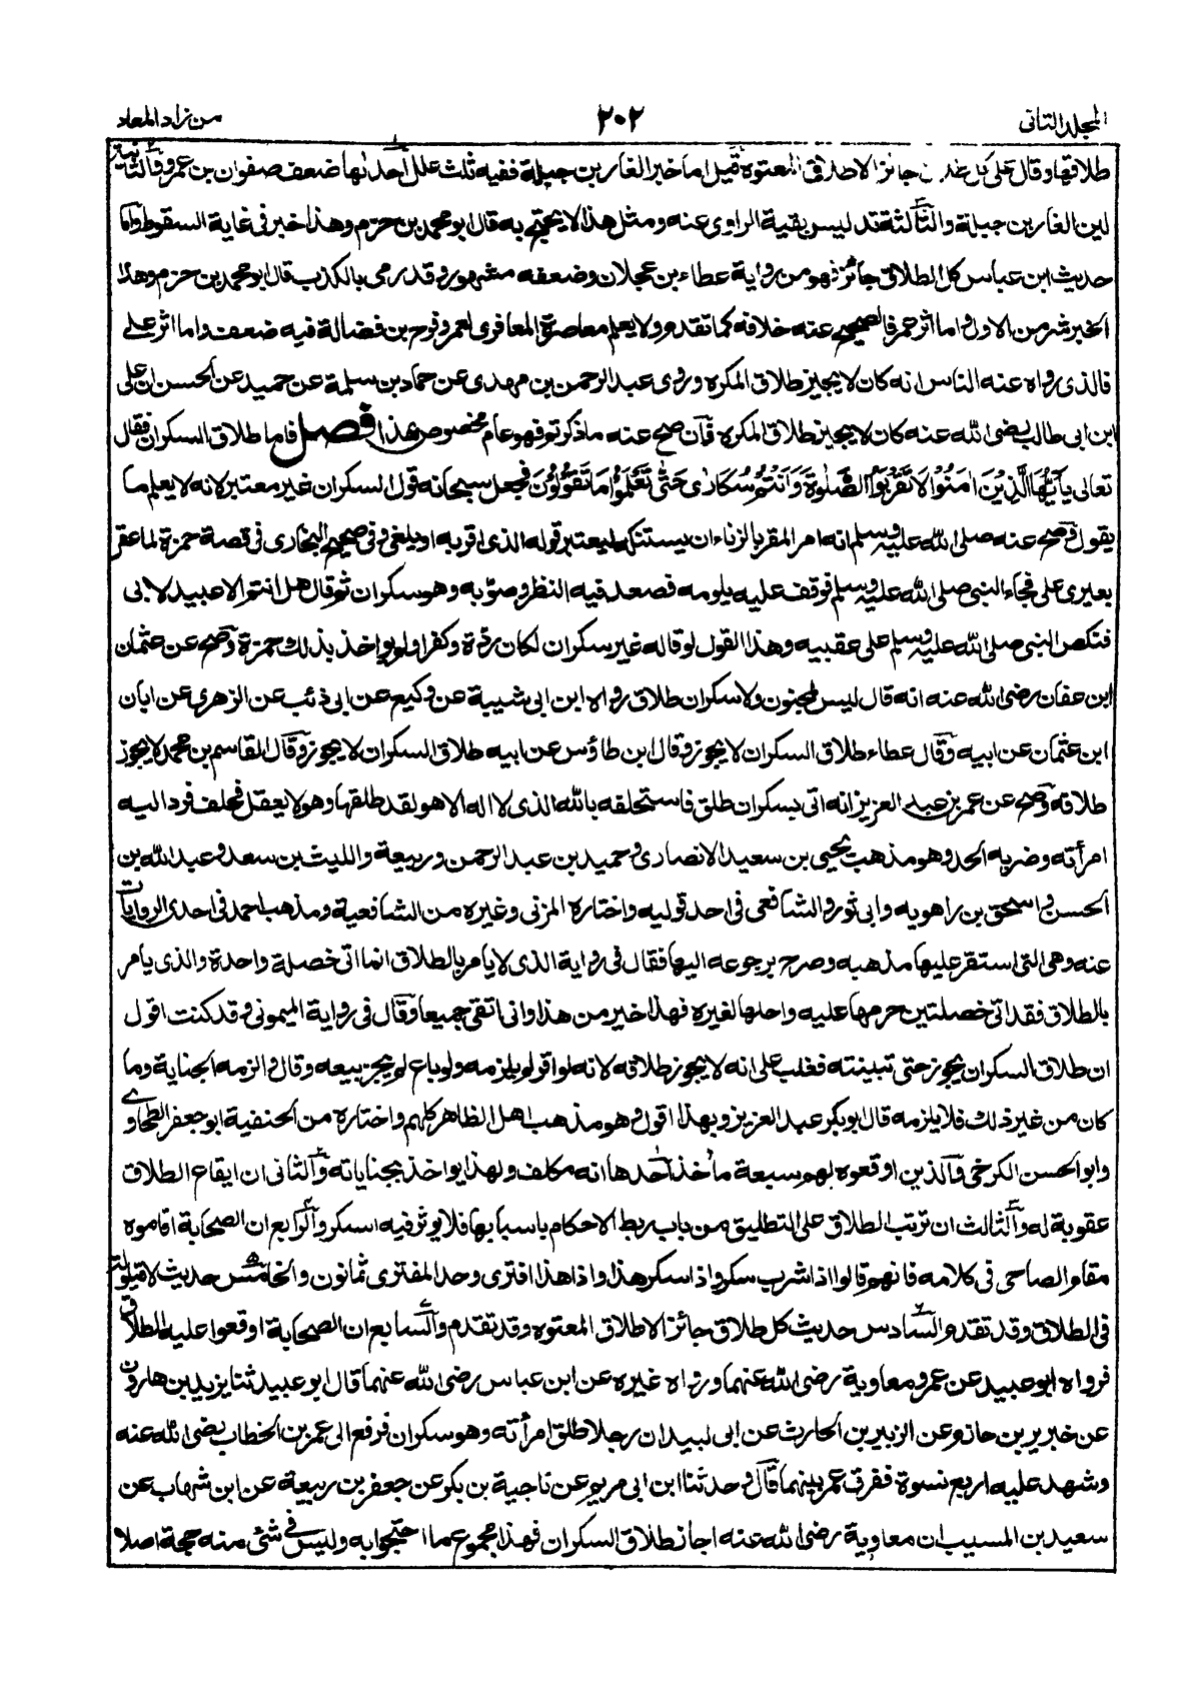 المجلد الثانی
٢٠٢
من زاد المعاد
طلاقها وقال علی کل جائز الا طلاق المعتوه قیل اما خبر الغار بن جبلة ففیه ثلث علل احدٰها ضعف صفوان بن عمرو والثانیة
لین الغار بن جبلة والثالثة تدلیس بقیة الراوی عنه ومثل هذا لا یحتج به قال ابو محمد بن حزم وهذا خبر فی غایة السقوط واما
حدیث ابن عباس کل الطلاق جائز فهو من روایة عطاء بن عجلان وضعفه مشهور وقد رمی بالکذب قال ابو محمد بن حزم وهذا
الخبر شر من الاول واما اثر عمر فالصحیح عنه خلافه کما تقدم ولا یعلم معاصرة المعافری لعمر وفرج بن فضالة فیه ضعف واما اثر علی
فالذی رواه عنه الناس انه کان لا یجیز طلاق المکره وروی عبد الرحمن بن مهدی عن حماد بن سلمة عن حمید عن الحسن ان علی
ابن ابی طالب رضی الله عنه کان لا یجیز طلاق المکره فان صح عنه ما ذکرتم فهو عام مخصوص بهذا فصل فاما طلاق السکران فقال
تعالی یٰٓاَیُّهَا الَّذِیْنَ اٰمَنُوْا لَا تَقْرَبُوا الصَّلٰوةَ وَاَنْتُمْ سُکَارٰی حَتّٰی تَعْلَمُوْا مَا تَقُوْلُوْنَ فجعل سبحانه قول السکران غیر معتبر لانه لا یعلم ما
یقول وصح عنه صلی الله علیه وسلم انه امر المقر بالزناء ان یستنکه لیعتبر قوله الذی اقر به او یلغی وفی صحیح البخاری فی قصة حمزة لما عقر
بعیری علی فجاء النبی صلی الله علیه وسلم فوقف علیه یلومه فصعد فیه النظر وصوّبه وهو سکران ثم قال هل انتم الا عبید لابی
فنکص النبی صلی الله علیه وسلم علی عقبیه وهذا القول لو قاله غیر سکران لکان ردة وکفرا ولم یواخذ بذلک حمزة وصح عن عثمان
ابن عفان رضی الله عنه انه قال لیس لمجنون ولا سکران طلاق رواه ابن ابی شیبة عن وکیع عن ابی ذئب عن الزهری عن ابان
ابن عثمان عن ابیه وقال عطاء طلاق السکران لا یجوز وقال ابن طاؤس عن ابیه طلاق السکران لا یجوز وقال القاسم بن محمد لا یجوز
طلاقه وصح عن عمر بن عبد العزیز انه اتی بسکران طلق فاستحلفه بالله الذی لا اله الا هو لقد طلقها وهو لا یعقل فحلف فرد الیه
امرأته وضربه الحد وهو مذهب یحیی بن سعید الانصاری وحمید بن عبد الرحمن وربیعة واللیث بن سعد وعبد الله بن
الحسن واسحق بن راهویه وابی ثور والشافعی فی احد قولیه واختاره المزنی وغیره من الشافعیة ومذهب احمد فی احدی الروایات
عنه وهی التی استقر علیها مذهبه وصرح برجوعه الیها فقال فی روایة الذی لا یامر بالطلاق انما اتی خصلة واحدة والذی یامر
بالطلاق فقد اتی خصلتین حرمها علیه واحلها لغیره فهذا خیر من هذا وانی اتقی جمیعا وقال فی روایة المیمونی وقد کنت اقول
ان طلاق السکران یجوز حتی تبینته فغلب علی انه لا یجوز طلاقه لانه لو اقر لم یلزمه ولو باع لم یجز بیعه وقال والزمه الجنایة وما
کان من غیر ذلک فلا یلزمه قال ابو بکر عبد العزیز وبهذا اقول وهو مذهب اهل الظاهر کلهم واختاره من الحنفیة ابو جعفر الطحاوی
وابو الحسن الکرخی والذین اوقعوه لهم سبعة مآخذ احدها انه مکلف ولهذا یواخذ بجنایاته والثانی ان ایقاع الطلاق
عقوبة له والثالث ان ترتب الطلاق علی التطلیق من باب ربط الاحکام باسبابها فلا یوثر فیه السکر والرابع ان الصحابة اقاموه
مقام الصاحی فی کلامه فانهم قالوا اذا شرب سکر واذا سکر هذا واذا هذا افتری وحد المفتری ثمانون والخامس حدیث لا قیلولة
فی الطلاق وقد تقدم والسادس حدیث کل طلاق جائز الا طلاق المعتوه وقد تقدم والسابع ان الصحابة اوقعوا علیه الطلاق
فرواه ابو عبید عن عمر ومعاویة رضی الله عنهما ورواه غیره عن ابن عباس رضی الله عنهما قال ابو عبید ثنا یزید بن هارون
عن جریر بن حازم عن الزبیر بن الحارث عن ابی لبید ان رجلا طلق امرأته وهو سکران فرفع الی عمر بن الخطاب رضی الله عنه
وشهد علیه اربع نسوة ففرق عمر بینهما قال وحدثنا ابن ابی مریم عن ناجیة بن بکر عن جعفر بن ربیعة عن ابن شهاب عن
سعید بن المسیب ان معاویة رضی الله عنه اجاز طلاق السکران فهذا مجموع ما احتجوا به ولیس فی شئ منه حجة اصلا